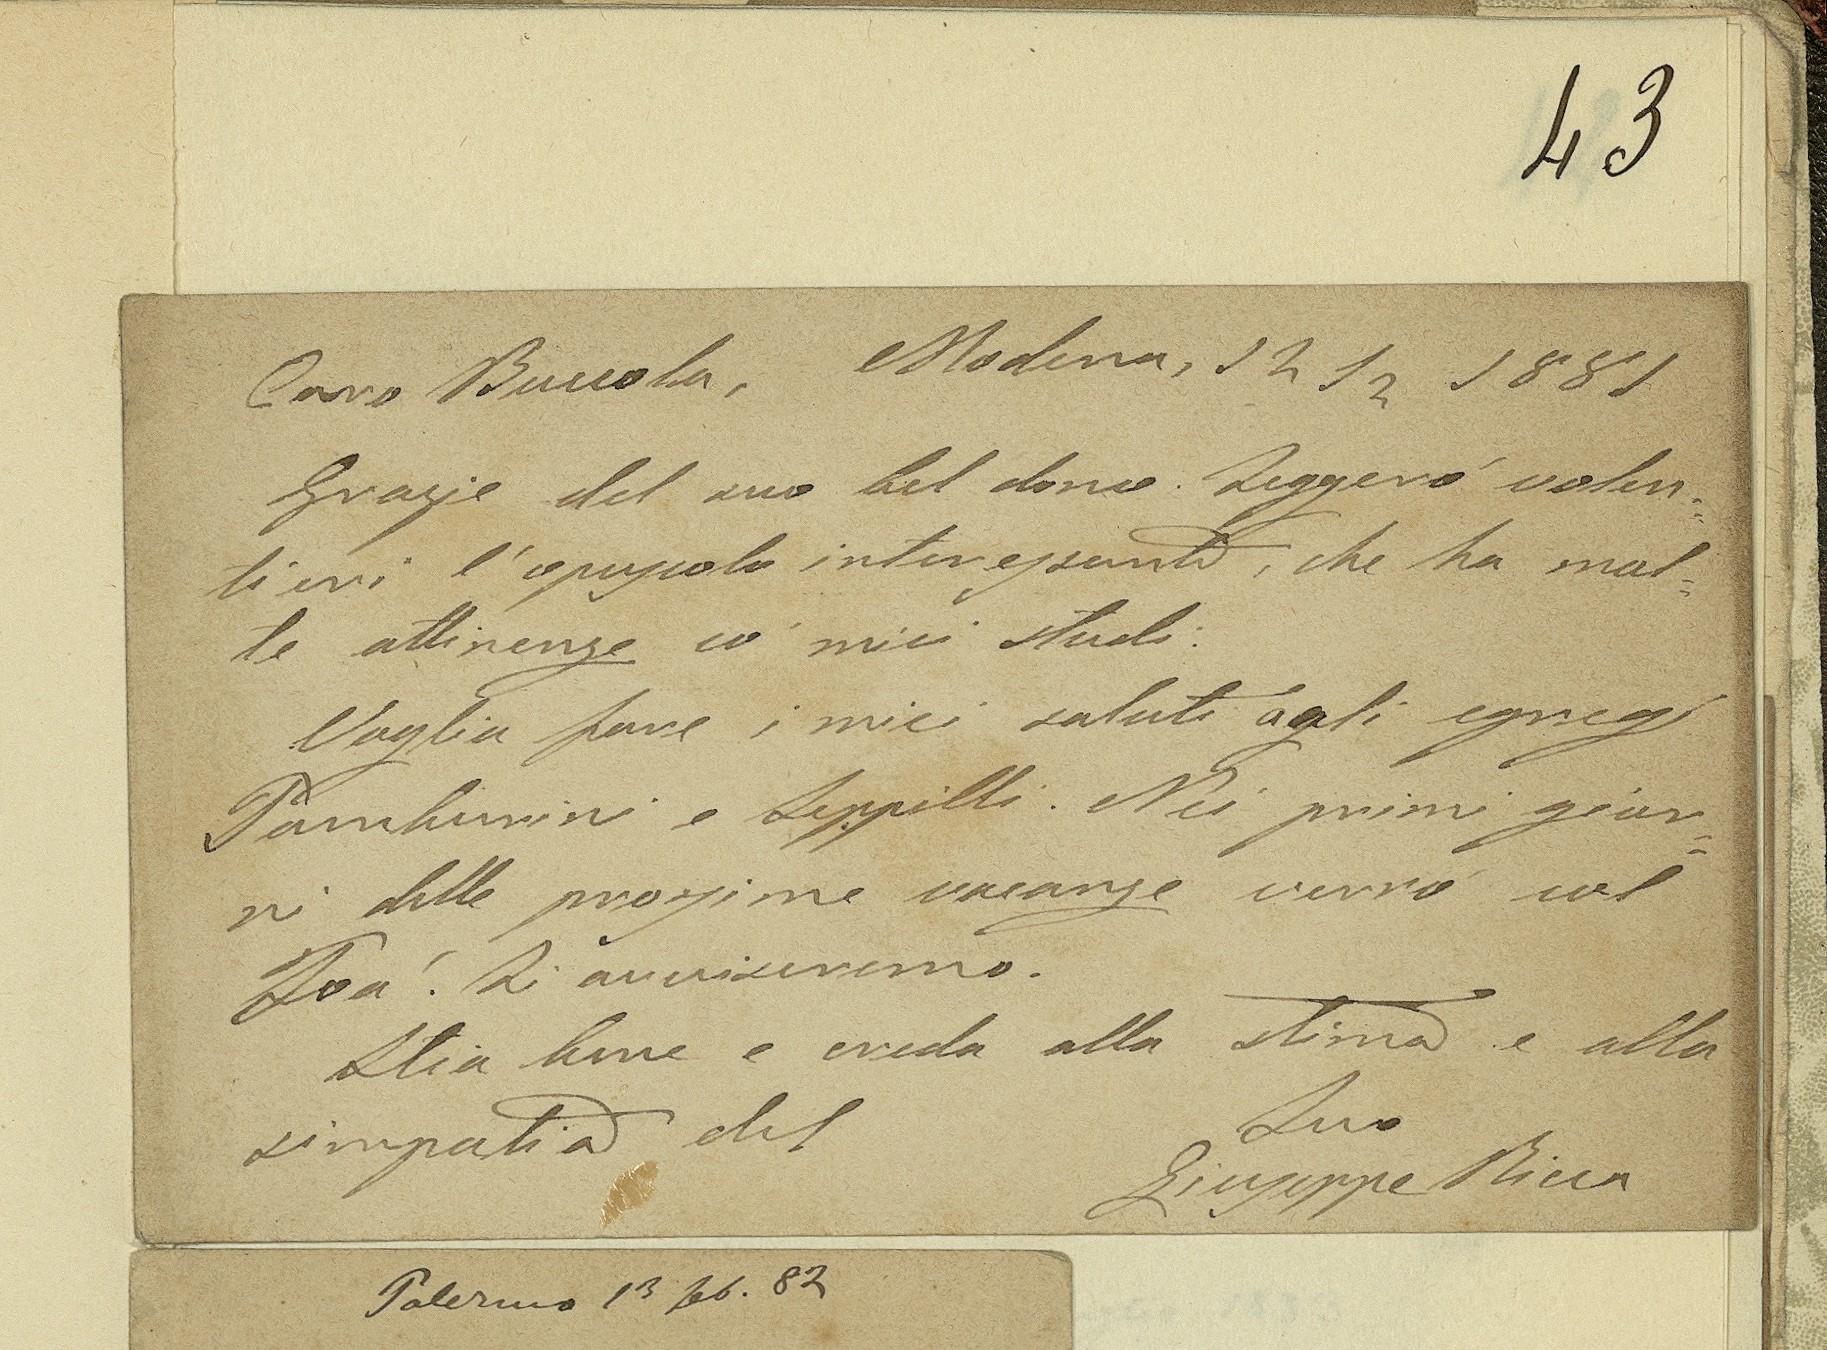 43
Caro Buccola, Modena, 12 12 1881
Grazie del suo bel dono. Leggerò volen=
tieri l'opuscolo interessante, che ha mol=
te attinenze co' miei studi.
Voglia fare i miei saluti agli egregi
Tamburini e Seppilli. Nei primi gior=
ni delle prossime vacanze verrò col
Foà. Li avviseremo.
Stia bene e creda alla stima e alla
simpatia del Suo
Giuseppe Ricca
Palermo 13 feb. 82